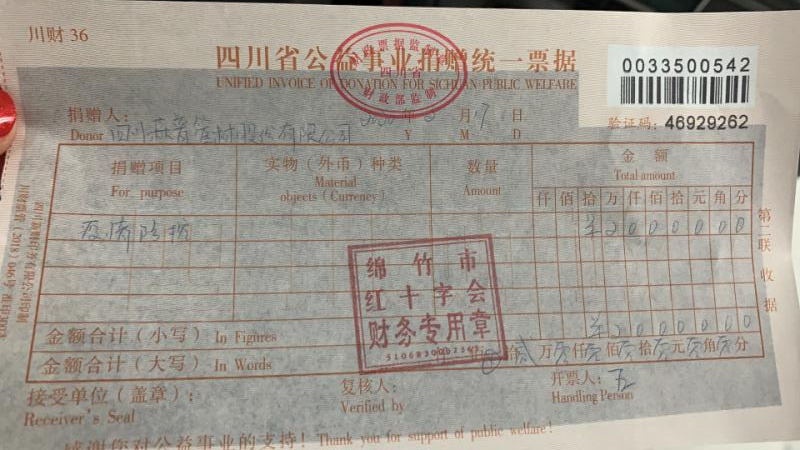 川财 36
四川省公益事业捐赠统一票据
UNIFIED INVOICE OF DONATION FOR SICHUAN PUBLIC WELFARE
四川省
财政部监制
0033500542
验证码: 46929262
捐赠人: 年 月 17 日
Donor 四川 管材股份有限公司 Y M D
捐赠项目 实物（外币）种类 数量 金额
For purpose Material objects (Currency) Amount Total amount
仟 佰 拾 万 仟 佰 拾 元 角 分
疫情防控 ¥ 2 0 0 0 0 0 0
绵竹市
红十字会
财务专用章
金额合计（小写） In Figures ¥ 2 0 0 0 0 0 0
金额合计（大写） In Words 仟 佰 贰 万 零 仟 零 佰 零 拾 零 元 零 角 零 分
接受单位（盖章）: 复核人: 开票人:
Receiver's Seal Verified by Handling Person
感谢您对公益事业的支持! Thank you for support of public welfare!
第二联 收据